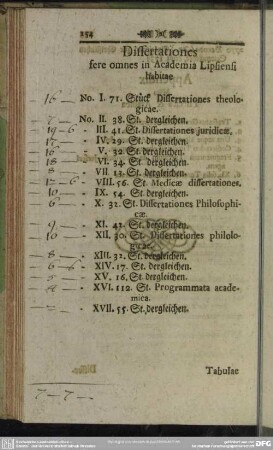 254
Dissertationes
fere omnes in Academia Lipsiensi
habitae
16 — No. I. 71. Stück Dissertationes theolo-
gicae.
7 — No. II. 38. St. dergleichen.
19 – 6 – - III. 41. St. Dissertationes juridicæ.
17 — - IV. 29. St. dergleichen.
16 — - V. 32. St. dergleichen.
18 — - VI. 34. St. dergleichen.
8 — - VII. 13. St. dergleichen.
12 – 6 – - VIII. 56. St. Medicæ dissertationes.
10 — - IX. 54. St. dergleichen.
6 — - X. 32. St. Dissertationes Philosophi-
cæ.
9 — - XI. 41. St. dergleichen.
10 — - XII. 30. St. Dissertationes philolo-
gicae.
8 — - XIII. 32. St. dergleichen.
6 – 6 – - XIV. 17. St. dergleichen.
- XV. 16. St. dergleichen.
- XVI. 112. St. Programmata acade-
mica.
- XVII. 55. St. dergleichen.
Tabulae
7 – 7 –